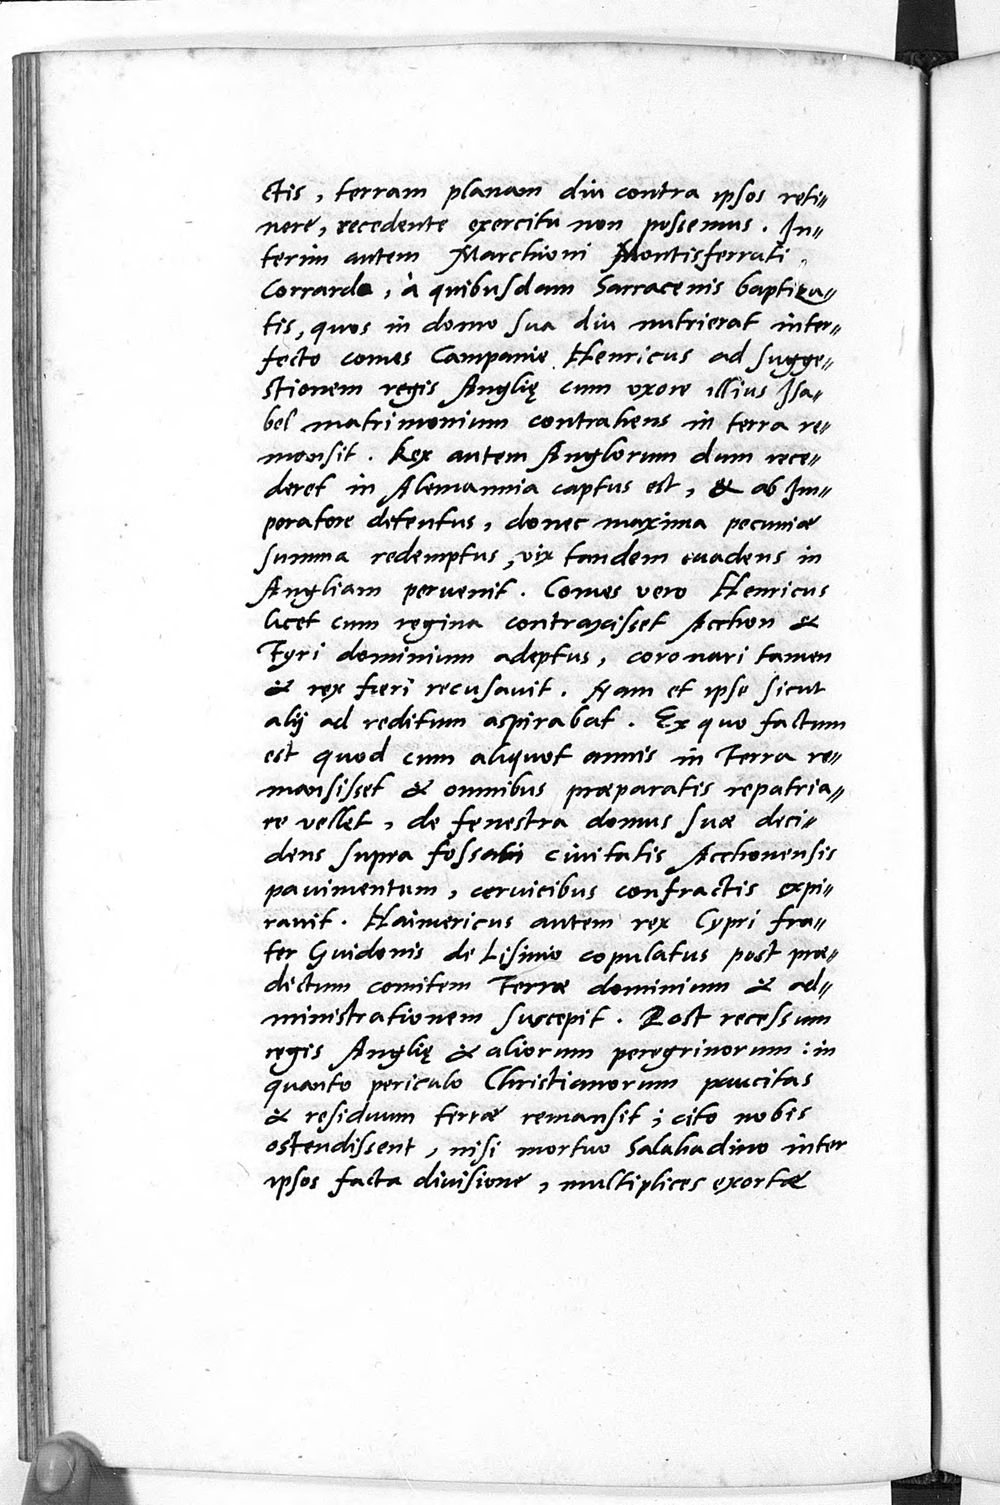 ctis, terram planam diu contra ipsos reti„
nere, recedente exercitu non possemus. In„
terim autem Marchioni Montisferrati
Corrardo, à quibusdam Sarracenis baptiza„
tis, quos in domo sua diu nutrierat inter„
fecto comes Campanie Henricus ad sugge„
stionem regis Anglię cum uxore illius Isa„
bel matrimonium contrahens in terra re„
mansit. Rex autem Anglorum dum rece„
deret in Alemannia captus est, & ab Im„
peratore detentus, donec maxima pecuniæ
summa redemptus, vix tandem evadens in
Angliam pervenit. Comes vero Henricus
licet cum regina contraxisset Acchon &
Tyri dominium adeptus, coronari tamen
& rex fieri recusavit. Nam et ipse sicut
alij ad reditum aspirabat. Ex quo factum
est quod cum aliquot annis in Terra re„
mansisset & omnibus præparatis repatria„
re vellet, de fenestra domus suæ deci„
dens supra fossati civitatis Acchonensis
pavimentum, cervicibus confractis expi„
ravit. Haimericus autem rex Cypri fra„
ter Guidonis de Lisinio copulatus post præ„
dictum comitem Terræ dominium & ad„
ministrationem suscepit. Post recessum
regis Anglię & aliorum peregrinorum : in
quanto periculo Christianorum paucitas
& residuum terræ remansit ; cito nobis
ostendissent, nisi mortuo Salahadino inter
ipsos facta divisione, multiplices exortæ